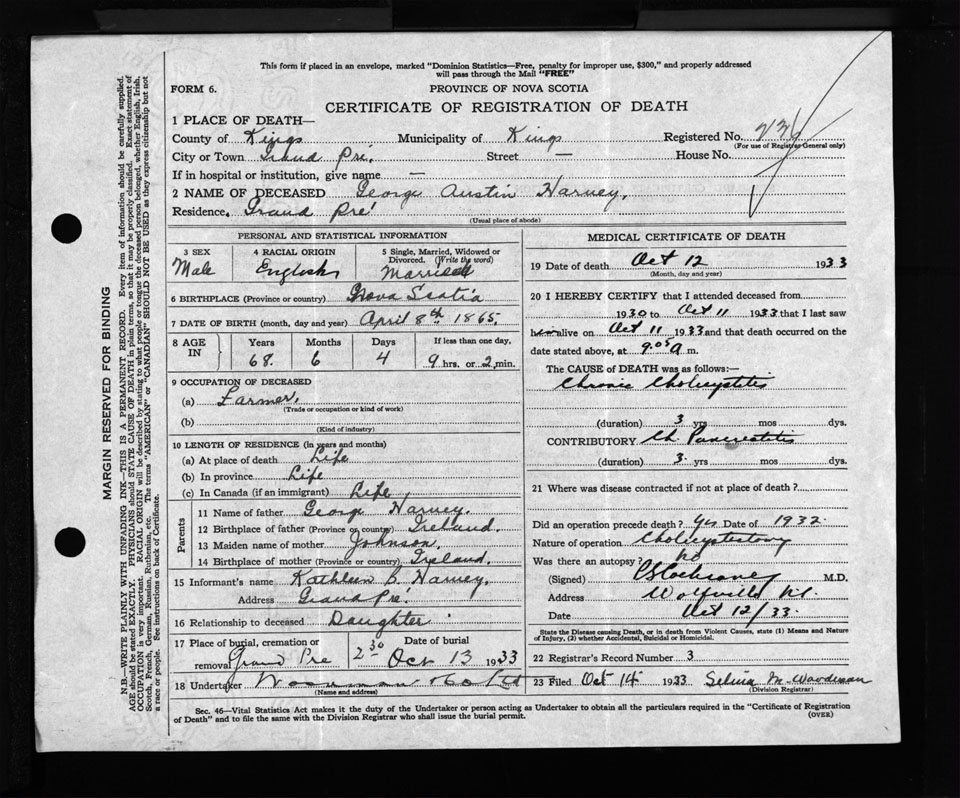 This form if placed in an envelope, marked "Dominion Statistics—Free, penalty for improper use, $300," and properly addressed
will pass through the Mail "FREE"
FORM 6.
PROVINCE OF NOVA SCOTIA
CERTIFICATE OF REGISTRATION OF DEATH
1 PLACE OF DEATH—
County of Kings Municipality of Kings Registered No. 236
(For use of Registrar General only)
City or Town Grand Pré. Street — House No.
If in hospital or institution, give name —
2 NAME OF DECEASED George Austin Harvey,
Residence, Grand Pré
(Usual place of abode)
PERSONAL AND STATISTICAL INFORMATION
3 SEX Male
4 RACIAL ORIGIN English
5 Single, Married, Widowed or
Divorced. (Write the word)
Married
6 BIRTHPLACE (Province or country) Nova Scotia
7 DATE OF BIRTH (month, day and year) April 8th 1865.
8 AGE IN
Years Months Days If less than one day,
68. 6 4 9 hrs. or 2 min.
9 OCCUPATION OF DECEASED
(a) Farmer,
(Trade or occupation or kind of work)
(b)
(Kind of industry)
10 LENGTH OF RESIDENCE (in years and months)
(a) At place of death Life
(b) In province Life
(c) In Canada (if an immigrant) Life
Parents
11 Name of father George Harvey.
12 Birthplace of father (Province or country) Ireland.
13 Maiden name of mother Johnson.
14 Birthplace of mother (Province or country) Ireland.
15 Informant's name Kathleen B. Harvey,
Address Grand Pré
16 Relationship to deceased Daughter
17 Place of burial, cremation or
removal Grand Pre
2 30
Date of burial
Oct 13 1933
18 Undertaker Woodman &Co Ltd
(Name and address)
MEDICAL CERTIFICATE OF DEATH
19 Date of death Oct 12 1933
(Month, day and year)
20 I HEREBY CERTIFY that I attended deceased from
1930 to Oct 11 1933 that I last saw
alive on Oct 11 1933 and that death occurred on
date stated above, at 9.05 a m.
The CAUSE of DEATH was as follows:—
Chronic Cholecystitis
(duration) 3 yrs mos dys.
CONTRIBUTORY Ch Pancreatitis
(duration) 3. yrs mos dys.
21 Where was disease contracted if not at place of death?
Did an operation precede death? Yes Date of 1932.
Nature of operation Cholecystectomy
Was there an autopsy? no
(Signed) Cochrane M.D.
Address Wolfville N.S.
Date Oct 12/33.
State the Disease causing Death, or in death from Violent Causes, state (1) Means and Nature
of Injury, (2) whether Accidental, Suicidal or Homicidal.
22 Registrar's Record Number 3
23 Filed Oct 14 1933 Selina M. Woodman
(Division Registrar)
Sec. 46—Vital Statistics Act makes it the duty of the Undertaker or person acting as Undertaker to obtain all the particulars required in the "Certificate of Registration
of Death" and to file the same with the Division Registrar who shall issue the burial permit.
(OVER)
MARGIN RESERVED FOR BINDING
N.B.—WRITE PLAINLY WITH UNFADING INK—THIS IS A PERMANENT RECORD. Every item of information should be carefully supplied.
AGE should be stated EXACTLY. PHYSICIANS should STATE CAUSE OF DEATH in plain terms, so that it may be properly classified. Exact statement of
OCCUPATION is very important. RACIAL ORIGIN will be described by stating to what people or tongue the deceased person belonged, whether English, Irish,
Scotch, French, German, Russian, Ruthenian, etc. The terms "AMERICAN" or "CANADIAN" SHOULD NOT BE USED as they express citizenship but not
a race or people. See instructions on back of Certificate.